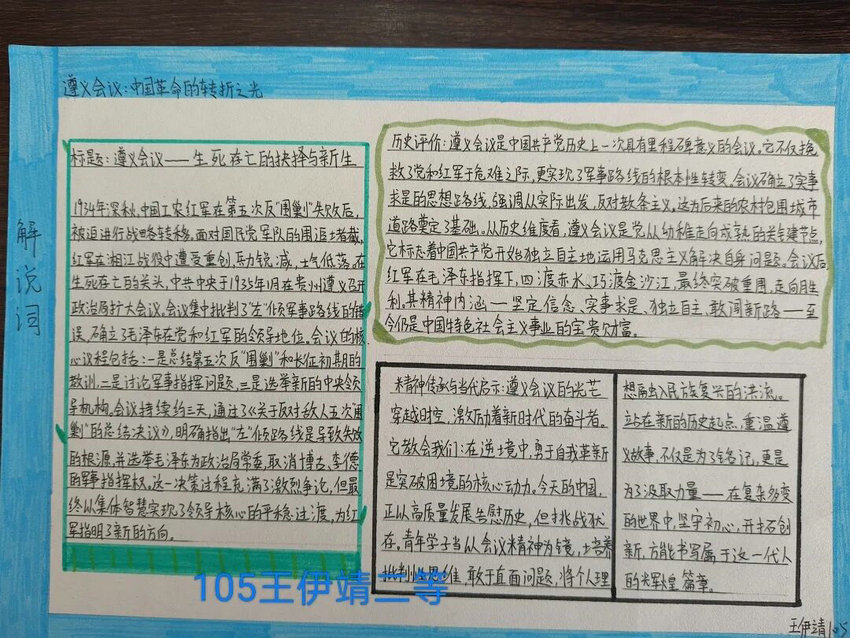 遵义会议:中国革命的转折之光
解说词
标题:遵义会议——生死存亡的抉择与新生
1934年深秋,中国工农红军在第五次反"围剿"失败后,
被迫进行战略转移。面对国民党军队的围追堵截,
红军在湘江战役中遭受重创,兵力锐减,士气低落。在
生死存亡的关头,中共中央于1935年1月在贵州遵义召开
政治局扩大会议。会议集中批判了"左"倾军事路线的错
误,确立了毛泽东在党和红军的领导地位。会议的核
心议程包括:一是总结第五次反"围剿"和长征初期的
教训,二是讨论军事指挥问题,三是选举新的中央领
导机构。会议持续约三天,通过了《关于反对敌人五次"围
剿"的总结决议》,明确指出"左"倾路线是导致失败
的根源,并选举毛泽东为政治局常委,取消博古、李德
的军事指挥权。这一决策过程充满了激烈争论,但最
终从集体智慧实现了领导核心的平稳过渡,为红
军指明了新的方向。
历史评价:遵义会议是中国共产党历史上一次具有里程碑意义的会议。它不仅挽
救了党和红军于危难之际,更实现了军事路线的根本性转变。会议确立了实事
求是的思想路线,强调从实际出发,反对教条主义。这为后来的农村包围城市
道路奠定了基础。从历史维度看,遵义会议是党从幼稚走向成熟的关键节点,
它标志着中国共产党开始独立自主地运用马克思主义解决自身问题。会议后,
红军在毛泽东指挥下,四渡赤水、巧渡金沙江,最终突破重围,走向胜
利。其精神内涵——坚定信念、实事求是、独立自主、敢闯新路——至
今仍是中国特色社会主义事业的宝贵财富。
精神传承与当代启示:遵义会议的光芒
穿越时空,激励着新时代的奋斗者。
它教会我们:在逆境中,勇于自我革新
是突破困境的核心动力。今天的中国,
正从高质量发展告慰历史,但挑战犹
存。青年学子当从会议精神为镜,培养
批判性思维,敢于直面问题,将个人理
想融入民族复兴的洪流。
站在新的历史起点,重温遵
义故事,不仅是为了铭记,更是
为了汲取力量——在复杂多变
的世界中,坚守初心,开拓创
新,方能书写属于这一代人
的辉煌篇章。
105王伊靖二等
王伊靖105